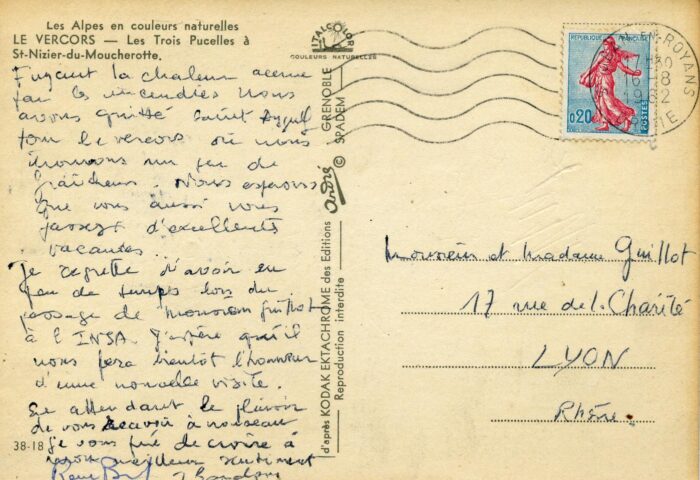 Les Alpes en couleurs naturelles
LE VERCORS — Les Trois Pucelles à
St-Nizier-du-Moucherotte.
Fuyant la chaleur accrue
par les incendies nous
avons quitté Saint
pour le vercors où nous
trouvons un peu de
fraîcheur. Nous espérons
que vous aussi vous
passez d'excellentes
vacances.
Je regrette d'avoir eu
peu de temps lors du
passage de monsieur Guillot
à l'INSA. J'espère qu'il
nous fera bientôt l'honneur
d'une nouvelle visite.
En attendant le plaisir
de vous recevoir à nouveau
je vous prie de croire à
meilleurs sentiments
38-18
ITALCOLOR
COULEURS NATURELLES
GRENOBLE
© SPADEM
André
d'après KODAK EKTACHROME des Editions
Reproduction interdite
RÉPUBLIQUE FRANÇAISE
0,20
POSTES
EN-ROYANS
Monsieur et Madame Guillot
17 rue de la Charité
LYON
Rhône.